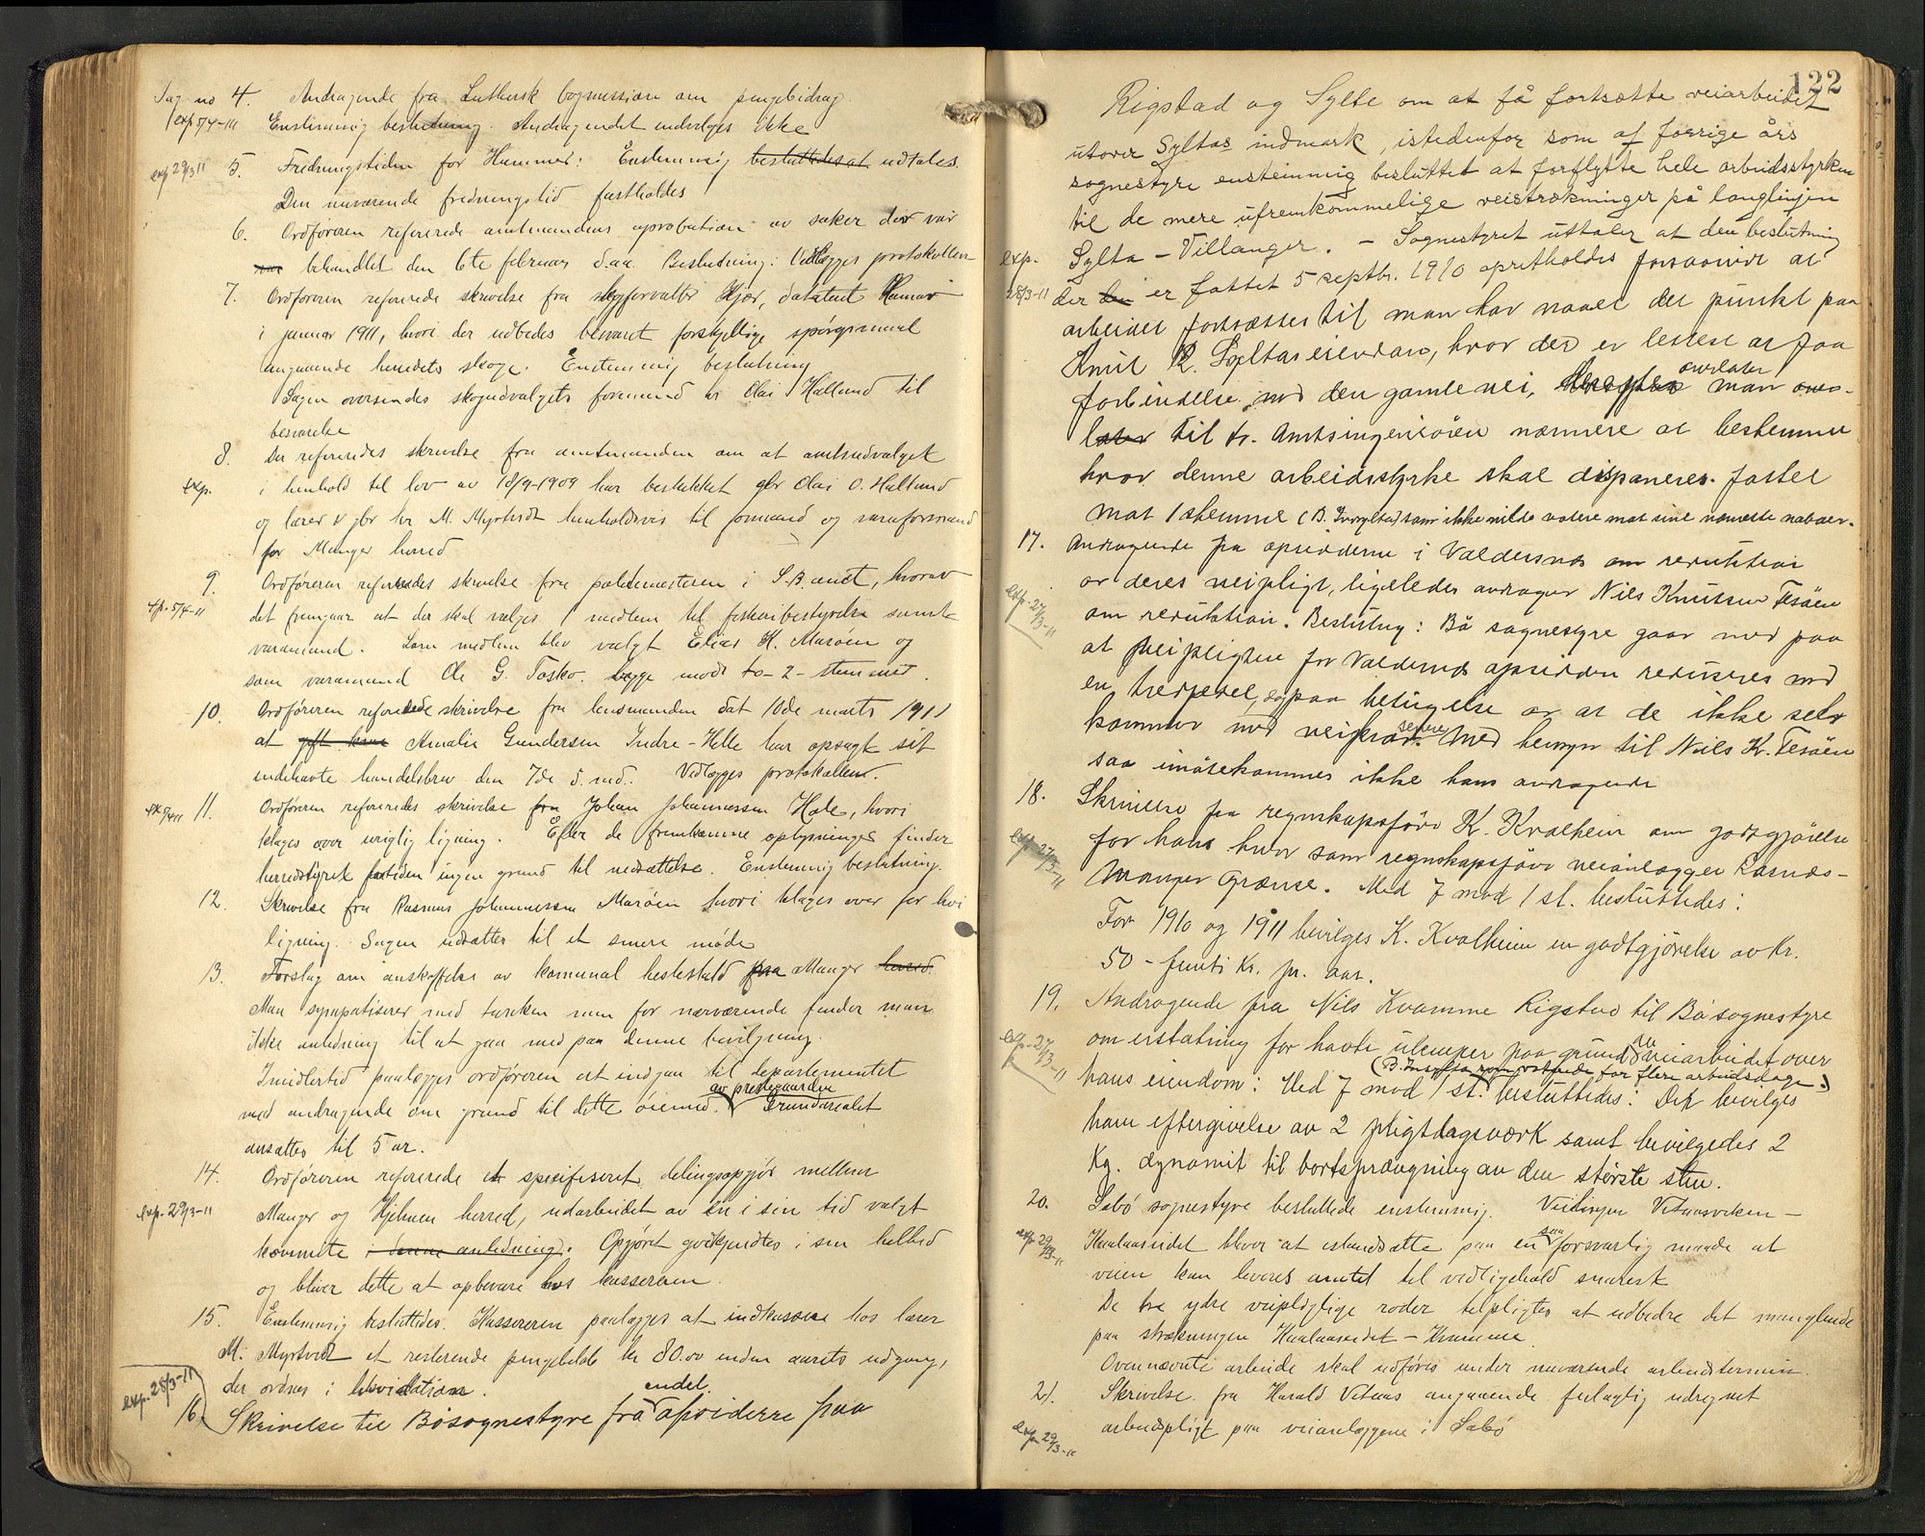 Sag no 4. Andragende fra Luthersk bogmission om pengebidrag.
exp 5/4-11 Enstemmig beslutning. Andragendet indvilges ikke
exp 29/3 11 5. Fredningstiden for Hummer: Enstemmig besluttedes at udtales.
Den nuværende fredningstid fastholdes
6. Ordføreren refererede amtmandens aprobation av saker der var
behandlet den 6te februar d.aa. Beslutning: Vedlægges protokollen
7. Ordføreren refererede skrivelse fra skogforvalter Kjær, datateret Hamar
i januar 1911, hvori der udbedes besvaret forskjellige spörgsmaal
angaaende herredets skoge. Enstemmig beslutning
Sagen oversendes skogudvalgets formand hr Clai Halland til
besvarelse
8. Der refereredes skrivelse fra amtmanden om at amtsudvalget
exp. i henhold til lov av 18/9-1909 har beskikket gbr Clai O. Halland
og lærer & gbr hr M. Myrtvedt henholdsvis til formand og varaformand
for Manger herred
9. Ordføreren refereredes skrivelse fra politimesteren i S.B. amt, hvorav
exp. 5/4-11 det fremgaar at der skal vælges 1 medlem til fiskeribestyrelse samt
varamand. Som medlem blev valgt Elias H. Maröen og
som varamand Ole G. Toska. begge mod to - 2 - stemmer.
10. Ordføreren refererede skrivelse fra lensmanden dat 10de marts 1911
at gift kone Amalie Gundersen Indre-Helle har opsagt sit
indehavte handelsbrev den 7de d. md. Vedlægges protokollen.
ex 5/4 11 11. Ordføreren refereredes skrivelse fra Johan Johannessen Hole, hvori
klages over urigtig ligning. Efter de fremkomne oplysninger finder
herredstyret fortiden ingen grund til nedsættelse. Enstemmig beslutning.
12. Skrivelse fra Rasmus Johannessen Maröen hvori klages over for høi
ligning. Sagen udsættes til et senere møde
13. Forslag om anskaffelse av komunal hestestald paa Manger herred.
Man sympatiserer med tanken men for nærværende finder man
ikke anledning til at gaa med paa denne bevilgning.
Imidlertid paalægges ordføreren at indgaa til departementet
med andragende om grund til dette øiemed. av prestegaarden Grundarealet
ansættes til 5 ar.
14. Ordføreren refererede et spesifiseret delingsopgjör mellem
exp. 29/3-11 Manger og Hjelmen herred, udarbeidet av en i sin tid valgt
komite i denne anledning. Opgjöret godkjendtes i sin helhed
og bliver dette at opbevare hos kassereren.
15. Enstemmig besluttedes. Kassereren paalægges at indkassere hos lærer
M. Myrtvedt et resterende pengebeløb kr 80.00 inden aarets udgang,
der ordnes i likvidation.
exp. 28/3-11 16. Skrivelse til Bøsognestyre fra endel opsiddere paa
122
Rigstad og Sylte om at få fortsætte veiarbeidet
utover Syltas indmark, istedenfor som af forrige års
sognestyre enstemmig besluttet at forflytte hele arbeidsstyrken
til de mere ufremkommelige veistrækninger på langlinjen
exp. Sylta - Villanger. - Sognestyret uttaler at den beslutning
28/3-11 der den er fattet 5 septbr. 1910 opretholdes forsaavidt at
arbeidet fortsættes til man har naaet det punkt paa
Knut R. Syltas eiendom, hvor det er lettest at faa
forbindelse med den gamle vei, hvorefter man overlater
til hr. Amtsingeniören nærmere at bestemme
hvor denne arbeidsstyrke skal disponeres. fattet
mot 1 stemme (B. som ikke vilde votere mot sine nærmeste naboer.
17. Andragende fra opsidderne i Valdersnes om reduktion
exp. 27/3-11 av deres veipligt, ligeledes andrager Nils Knutsen Tesöen
om reduktion. Beslutng: Bø sognestyre gaar med paa
at veipligten for Valdersnes opsiddere reduseres med
en tredjedel, og paa betingelse av at de ikke selv
kommer med veikrav senere. Med hensyn til Niels Kr. Tesöen
saa imötekommes ikke hans andragende
18. Skrivelse fra regnskapsförer K. Kvalheim om godtgjörelse
exp. 27/3-11 for hans hverv som regnskapsförer veianlægget Rasnæs-
Manger Grænse. Med 7 mod 1 st. besluttedes:
For 1910 og 1911 bevilges K. Kvalheim en godtgjörelse av Kr.
50 - femti Kr. pr. aar.
19. Andragende fra Nils Kvamme Rigstad til Bø sognestyre
exp. 27/3-11 om erstatning for havte ulemper paa grund av veiarbeidet over
hans eiendom: Med 7 mod 1 st. (B. som voterede for flere arbeidsdage) besluttedes: Der bevilges
ham eftergivelse av 2 pligtdagsværk samt bevilgedes 2
Kg. dynamit til bortsprængning av den störste sten.
20. Sæbö sognestyre besluttede enstemmig. Veilinjen Vetaasviken -
exp 29/3-11 Haalaaseidet bliver at istandsætte paa en saa forsvarlig maade at
veien kan leveres amtet til vedligehold snarest
De tre ydre veipligtige roder tilpligtes at udbedre det manglende
paa strækningen Haalaaseidet - Kvamme
Ovennævnte arbeide skal udføres under nuværende arbeidstermin.
21. Skrivelse fra Harald Vetaas angaaende feilagtig udregnet
exp 29/3-11 arbeidspligt paa veianlæggene i Sæbö